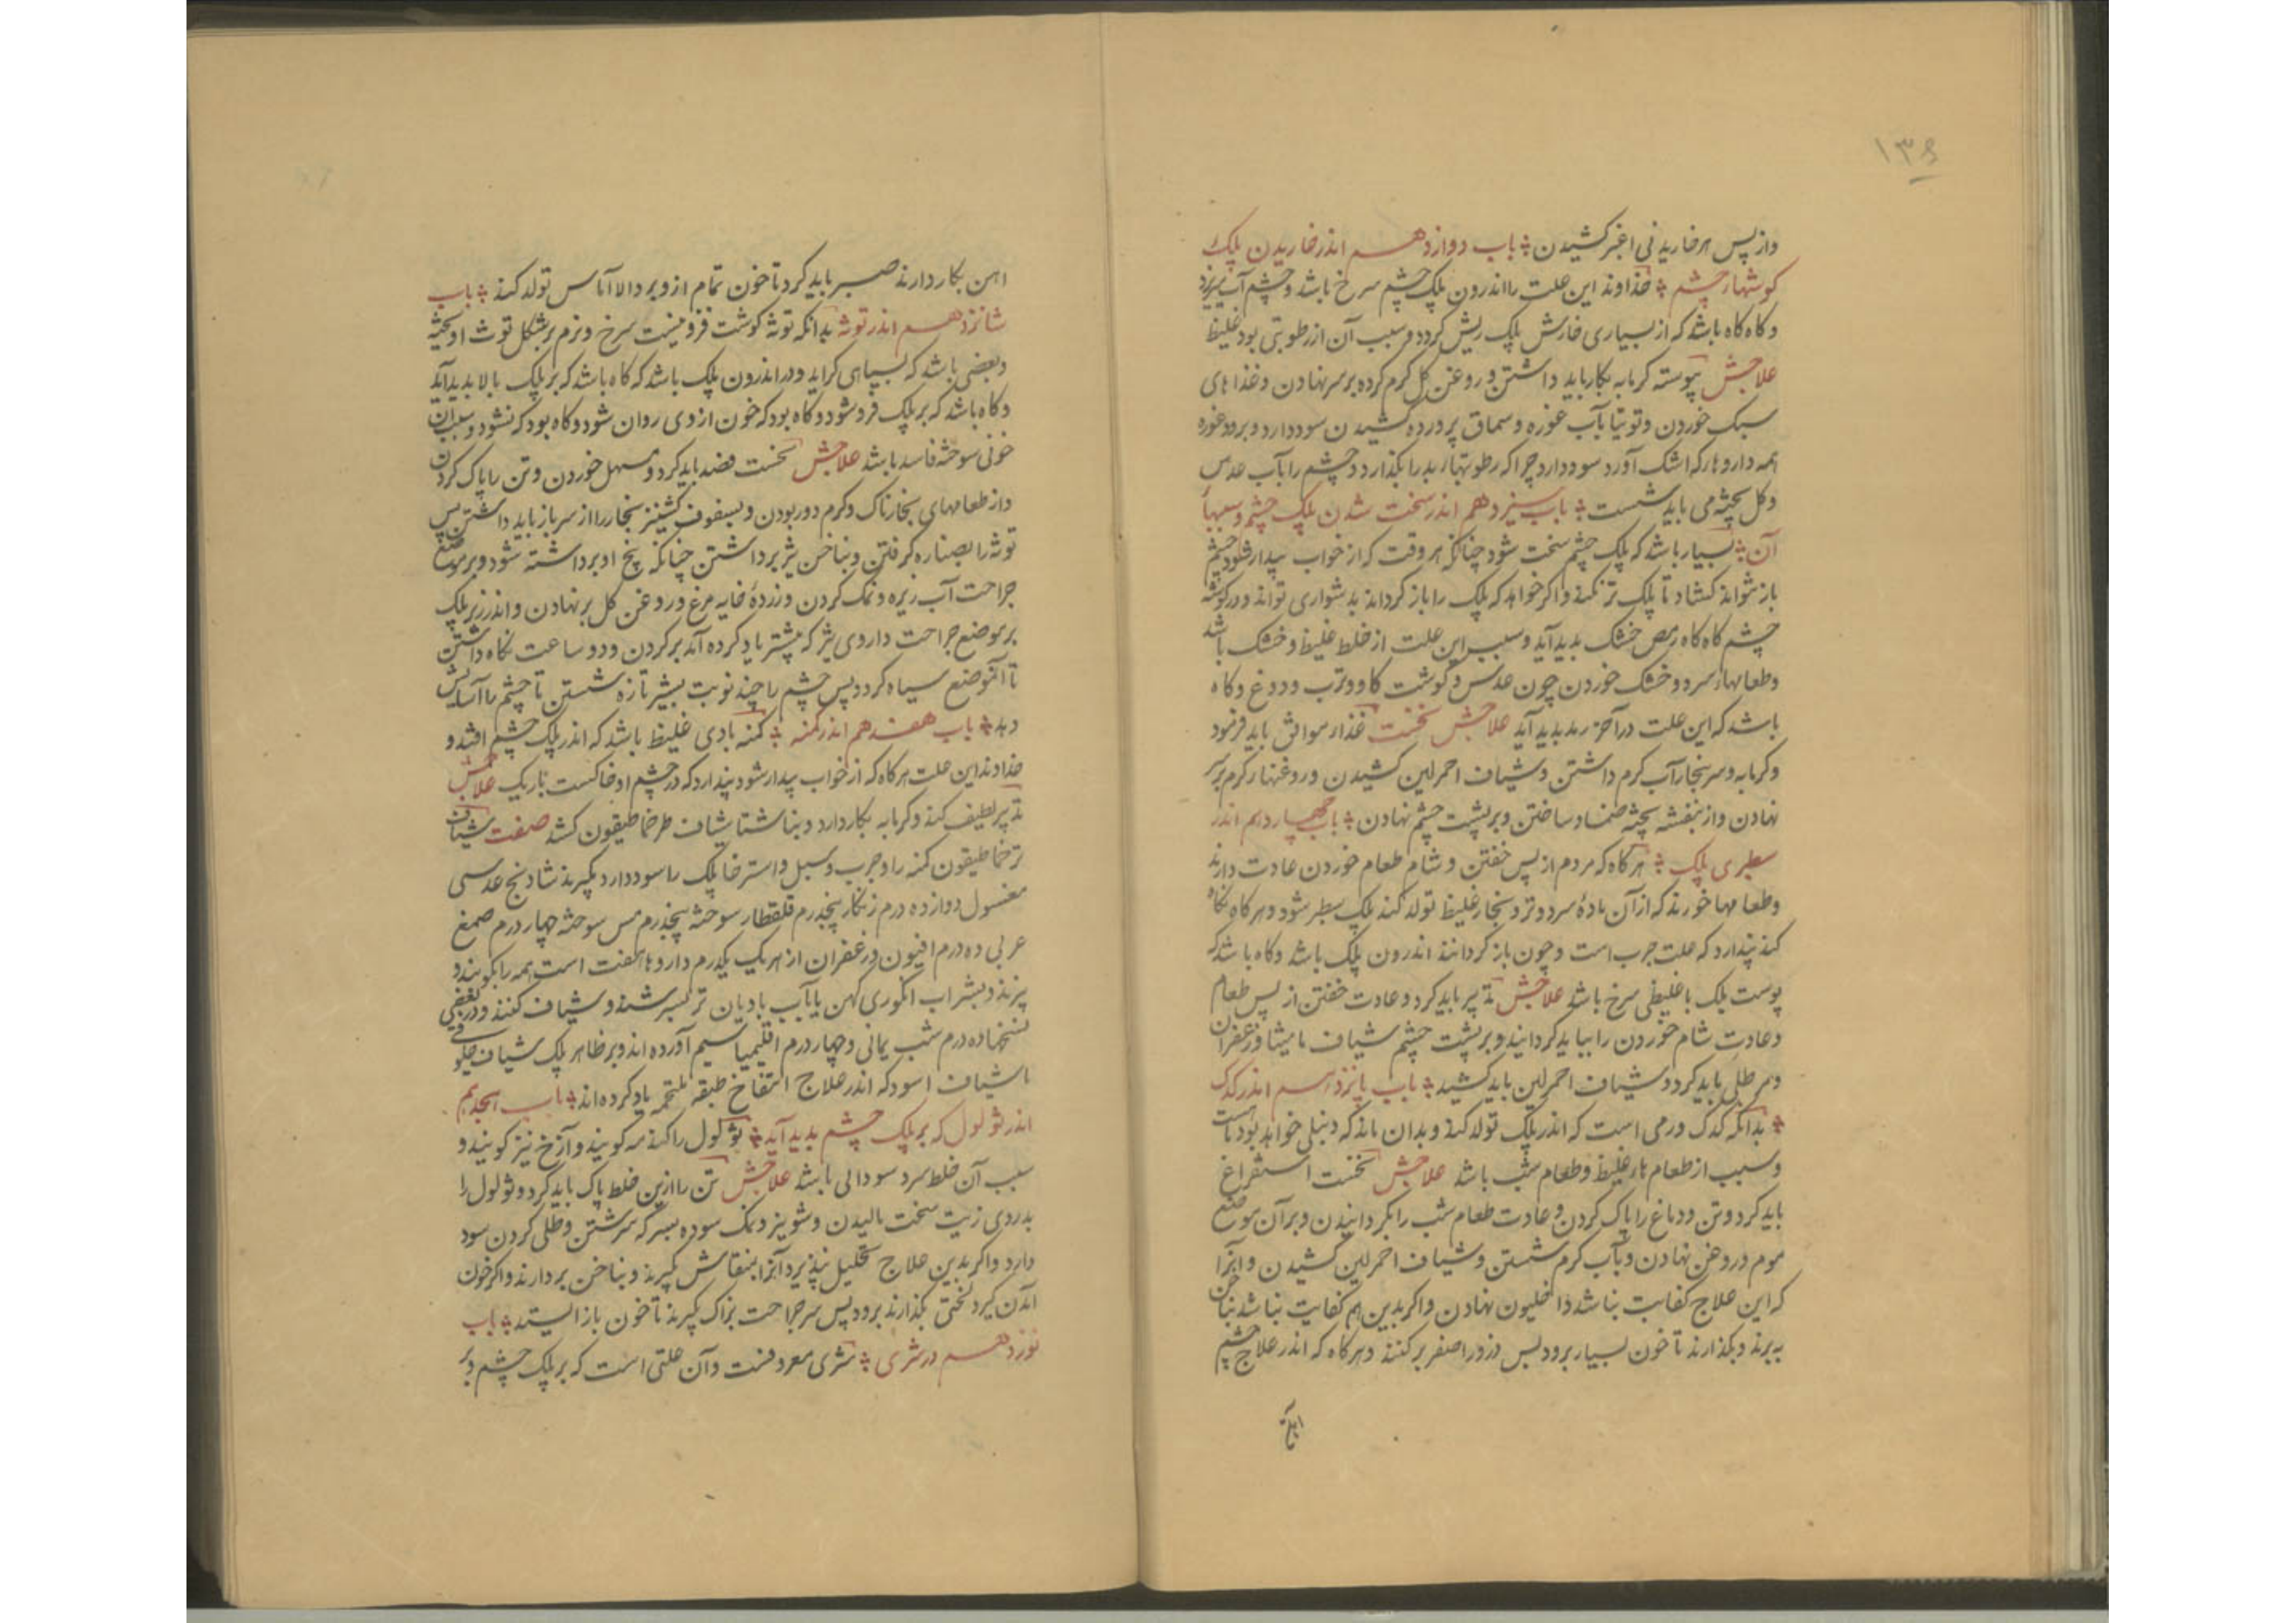 ۱۳۶
واز پس هر خاریدنی اغبر کشیدن باب دوازدهم اندر خاریدن پلک
گوشهاء چشم خداوند این علت را اندرون پلک چشم سرخ باشد و چشم آب میریزد
و کاه کاه باشد که از بسیاری خارش پلک ریش کردد و سبب آن از رطوبتی بود غلیظ
علاجش پیوسته کرمابه بکار باید داشتن و روغن کل کرم کرده بر سر نهادن و غذاهای
سبک خوردن و توتیا بآب غوره و سماق پرورده کشیدن سود دارد و برود غوره
همه داروها که اشک آورد سود دارد چرا که رطوبتهاء بد را بکذارد و چشم را بآب عدس
و کل پخته می باید شست باب سیزدهم اندر سخت شدن پلک چشم و سببهاء
آن بسیار باشد که پلک چشم سخت شود چنانکه هر وقت که از خواب بیدار شود چشم
باز نتواند کشاد تا پلک تر نکند و اکر خواهد که پلک را باز کرداند بدشواری تواند و در کوشه
چشم کاه کاه رمص خشک بدید آید و سبب این علت از خلط غلیظ و خشک باشد
و طعامهاء سرد و خشک خوردن چون عدس و کوشت کاو و ترب و دوغ و کاه
باشد که این علت در آخر رمد بدید آید علاجش نخست غذاء موافق باید فرمود
و کرمابه و سر ببخار آب کرم داشتن و شیاف احمر لین کشیدن و روغنهاء کرم بر سر
نهادن و از بنفشه پخته ضماد ساختن و بر پشت چشم نهادن باب چهاردهم اندر
سطبری پلک هر کاه که مردم از پس خفتن و شام طعام خوردن عادت دارند
و طعامها خورند که از آن مادهٔ سرد و تر و بخار غلیظ تولد کند پلک سطبر شود و هر کاه نکاه
کند پندارد که علت جرب است و چون باز کردانند اندرون پلک باشد و کاه باشد که
پوست پلک با غلیظی سرخ باشد علاجش تدبیر باید کرد و عادت خفتن از پس طعام
و عادت شام خوردن را بباید کردانید و بر پشت چشم شیاف مامیثا و زعفران
و مر طلی باید کرد و شیاف احمر لین باید کشید باب پانزدهم اندر کدک
بدانکه کدک ورمی است که اندر پلک تولد کند و بدان ماند که دنبلی خواهد بودن
و سبب از طعامهاء غلیظ و طعام شب باشد علاجش نخست استفراغ
باید کرد و تن و دماغ را پاک کردن و عادت طعام شب را بکردانیدن و بر آن موضع
موم و روغن نهادن و بآب کرم شستن و شیاف احمر لین کشیدن و آنرا
که این علاج کفایت نباشد داخلیون نهادن و اکر بدین هم کفایت نباشد بناخن
ببرند و بکذارند تا خون بسیار برود پس ذرور اصفر بر کنند و هر کاه که اندر علاج چشم
اهن بکار دارند صبر باید کرد تا خون تمام از و برود والا آماس تولد کند باب
شانزدهم اندر توثه بدانکه توثه کوشت فزونیست سرخ و نرم بر شکل توث
و بعضی باشد که بسیاهی کراید و در اندرون پلک باشد که کاه باشد که بر پلک بالا بدید آید
و کاه باشد که بر پلک فرو شود و کاه بود که خون از وی روان شود و کاه بود که نشود و سبب آن
خونی سوخته فاسد باشد علاجش نخست فصد باید کرد و مسهل خوردن و تن را پاک کردن
و از طعامهای بخارناک و کرم دور بودن و بسفوف کشنیز بخار را از سر باز باید داشتن پس
توثه را بصناره کرفتن و بناخن پر برداشتن چنانکه بیخ او برداشته شود و بر موضع
جراحت آب زیره و نمک کردن و زردهٔ خایه مرغ و روغن کل بر نهادن و اندر زیر پلک
بر موضع جراحت داروی که پیشتر یاد کرده آمد بر کردن و دو ساعت نکاه داشتن
تا آنموضع سیاه کردد پس چشم را چند نوبت بشیر تازه شستن تا چشم را آسایش
دهد باب هفدهم اندر کمنه کمنه بادی غلیظ باشد که اندر پلک چشم افتد و
خداوند این علت هر کاه که از خواب بیدار شود پندارد که در چشم او خاکست باریک علاجش
تدبیر لطیف کند و کرمابه بکار دارد و بناشتا شیاف طرخماطیقون کشد صفت شیاف
ترخماطیقون کمنه را و جرب و سبل و استرخا پلک را سود دارد بکیرند شادنج عدسی
مغسول دوازده درم زنکار پنجدرم قلقطار سوخته پنجدرم مس سوخته چهار درم صمغ
عربی ده درم افیون و زعفران از هر یک یکدرم داروها هفت است همه را بکوبند و
بپزند و بشراب انکوری کهن یا بآب بادیان تر بسرشند و شیاف کنند و در بعضی
نسختها ده درم شب یمانی و چهار درم اقلیمیا سیم آورده اند و بر ظاهر پلک شیاف
یا شیاف اسود که اندر علاج انتفاخ طبقه ملتحمه یاد کرده اند باب هجدهم
اندر ثولول که بر پلک چشم بدید آید ثولول را کندمه کویند و آزخ نیز کویند و
سبب آن خلط سرد سودائی باشد علاجش تن را ازین خلط پاک باید کرد و ثولول را
بدردی زیت سخت مالیدن و شونیز و نمک سوده بسرکه سرشتن و طلی کردن سود
دارد و اکر بدین علاج تحلیل نپذیرد آنرا بمنقاش کیرند و بناخن بردارند و اکر خون
آمدن کیرد لختی بکذارند برود پس سر جراحت بزاک کیرند تا خون باز ایستد باب
نوزدهم در شری شری معروفست و آن علتی است که بر پلک چشم و بر